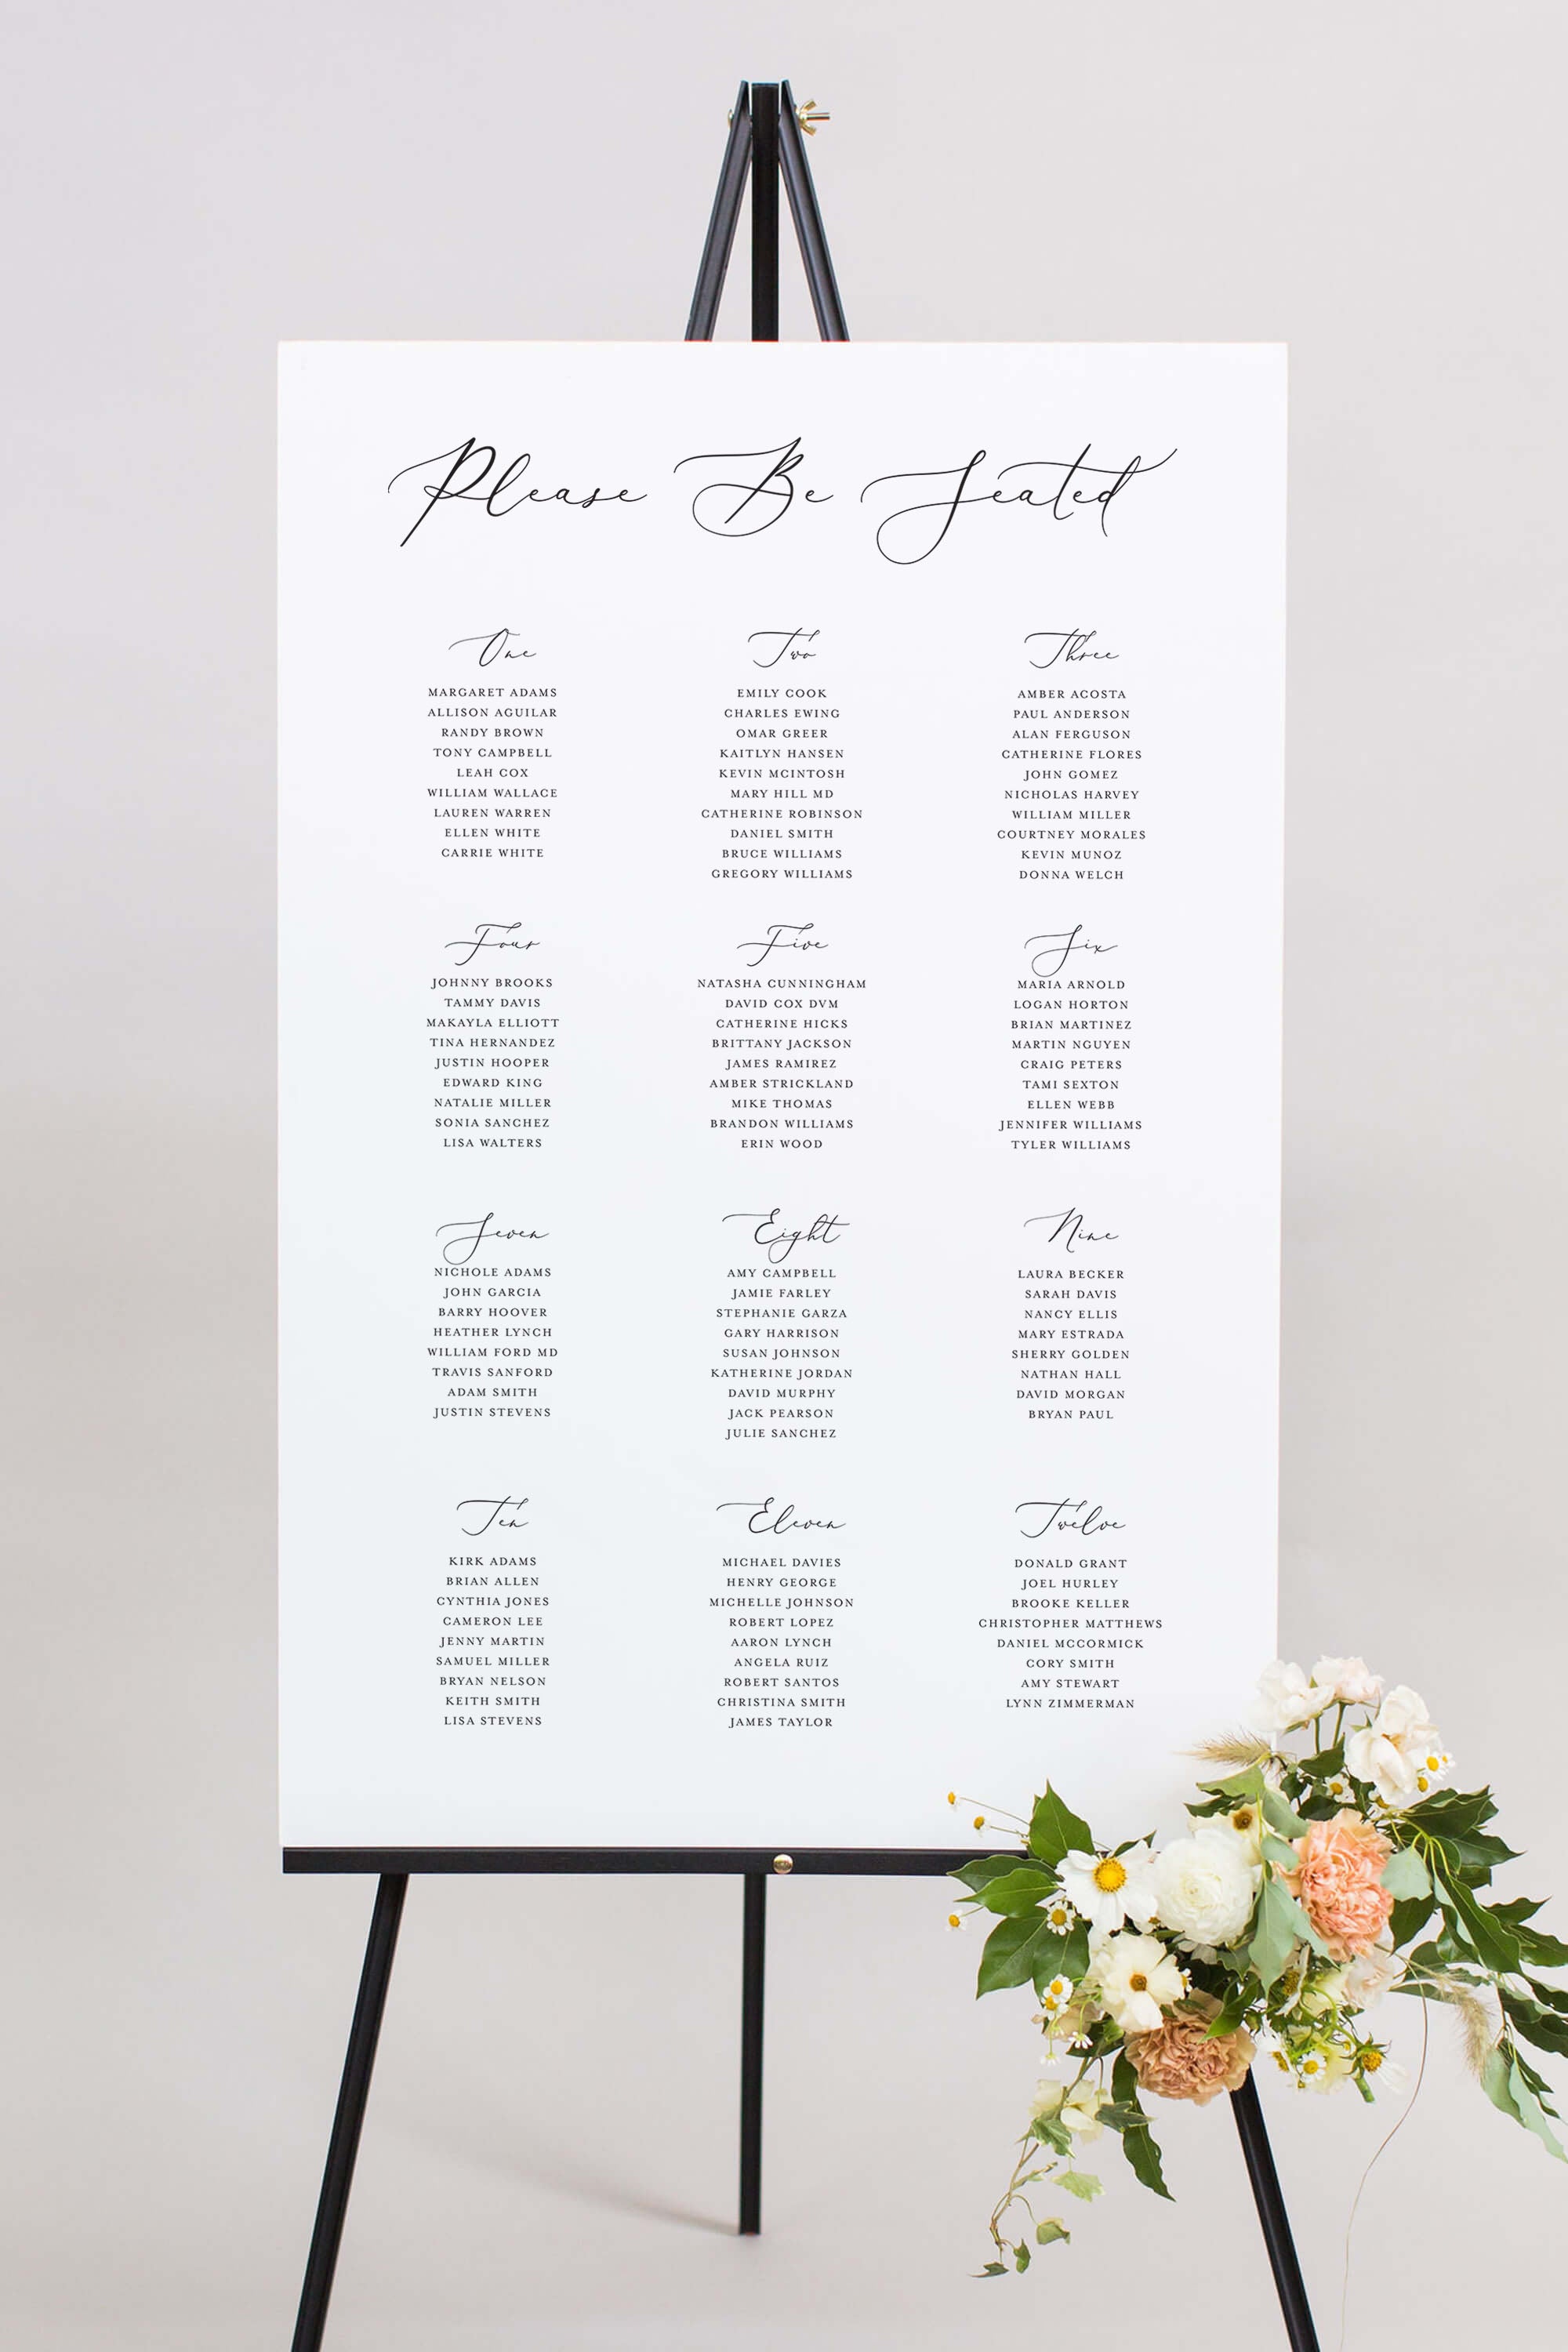 Please Be Seated
One
MARGARET ADAMS
ALLISON AGUILAR
RANDY BROWN
TONY CAMPBELL
LEAH COX
WILLIAM WALLACE
LAUREN WARREN
ELLEN WHITE
CARRIE WHITE
Two
EMILY COOK
CHARLES EWING
OMAR GREER
KAITLYN HANSEN
KEVIN MCINTOSH
MARY HILL MD
CATHERINE ROBINSON
DANIEL SMITH
BRUCE WILLIAMS
GREGORY WILLIAMS
Three
AMBER ACOSTA
PAUL ANDERSON
ALAN FERGUSON
CATHERINE FLORES
JOHN GOMEZ
NICHOLAS HARVEY
WILLIAM MILLER
COURTNEY MORALES
KEVIN MUNOZ
DONNA WELCH
Four
JOHNNY BROOKS
TAMMY DAVIS
MAKAYLA ELLIOTT
TINA HERNANDEZ
JUSTIN HOOPER
EDWARD KING
NATALIE MILLER
SONIA SANCHEZ
LISA WALTERS
Five
NATASHA CUNNINGHAM
DAVID COX DVM
CATHERINE HICKS
BRITTANY JACKSON
JAMES RAMIREZ
AMBER STRICKLAND
MIKE THOMAS
BRANDON WILLIAMS
ERIN WOOD
Six
MARIA ARNOLD
LOGAN HORTON
BRIAN MARTINEZ
MARTIN NGUYEN
CRAIG PETERS
TAMI SEXTON
ELLEN WEBB
JENNIFER WILLIAMS
TYLER WILLIAMS
Seven
NICHOLE ADAMS
JOHN GARCIA
BARRY HOOVER
HEATHER LYNCH
WILLIAM FORD MD
TRAVIS SANFORD
ADAM SMITH
JUSTIN STEVENS
Eight
AMY CAMPBELL
JAMIE FARLEY
STEPHANIE GARZA
GARY HARRISON
SUSAN JOHNSON
KATHERINE JORDAN
DAVID MURPHY
JACK PEARSON
JULIE SANCHEZ
Nine
LAURA BECKER
SARAH DAVIS
NANCY ELLIS
MARY ESTRADA
SHERRY GOLDEN
NATHAN HALL
DAVID MORGAN
BRYAN PAUL
Ten
KIRK ADAMS
BRIAN ALLEN
CYNTHIA JONES
CAMERON LEE
JENNY MARTIN
SAMUEL MILLER
BRYAN NELSON
KEITH SMITH
LISA STEVENS
Eleven
MICHAEL DAVIES
HENRY GEORGE
MICHELLE JOHNSON
ROBERT LOPEZ
AARON LYNCH
ANGELA RUIZ
ROBERT SANTOS
CHRISTINA SMITH
JAMES TAYLOR
Twelve
DONALD GRANT
JOEL HURLEY
BROOKE KELLER
CHRISTOPHER MATTHEWS
DANIEL MCCORMICK
CORY SMITH
AMY STEWART
LYNN ZIMMERMAN